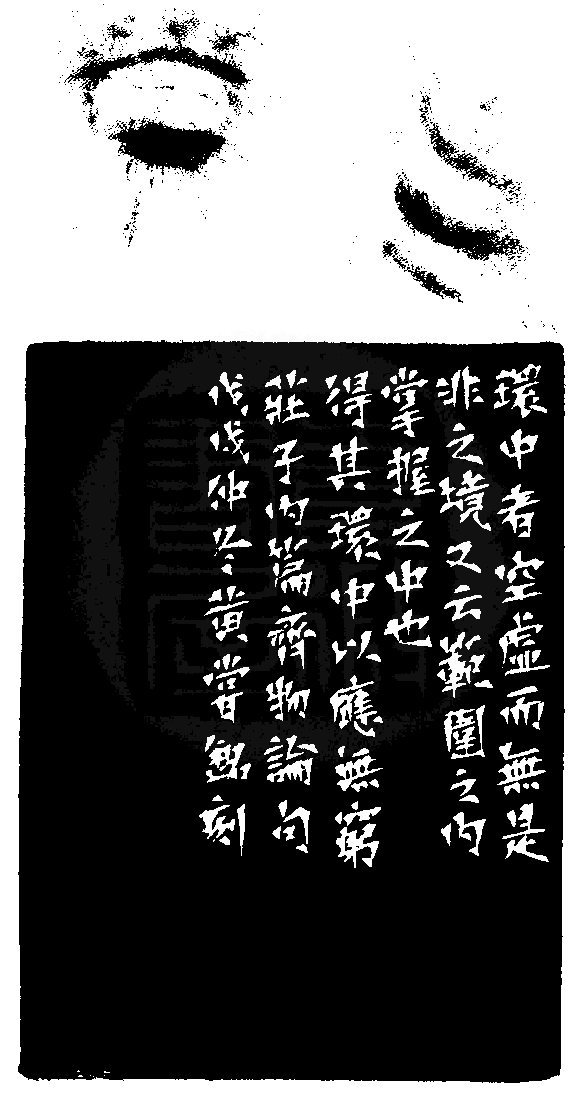 環中者空虛而無是
非之境又云範圍之內
掌握之中也
得其環中以應無窮
莊子內篇齊物論句
戊戌仲冬黃嘗銘刻